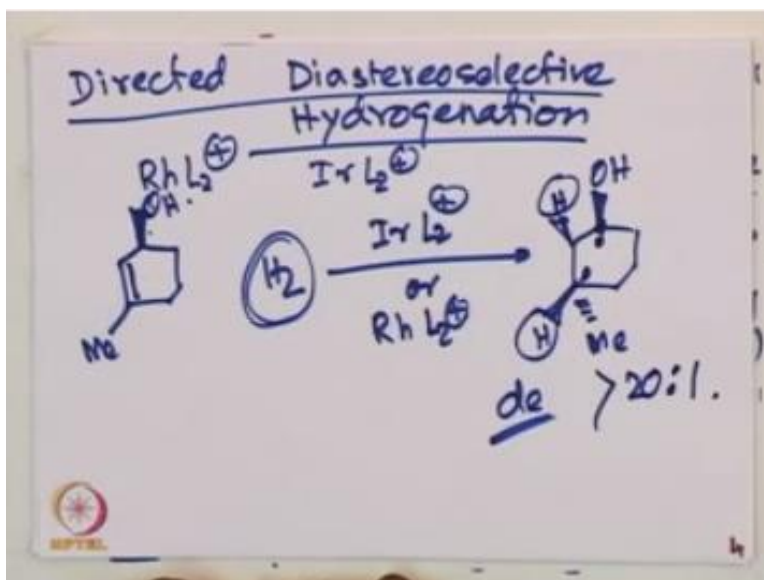 Directed Diastereoselective
Hydrogenation
RhL₂⊕
IrL₂⊕
OH
OH
H
IrL₂⊕
H₂
or
RhL₂⊕
Me
H
Me
de >20:1.
NPTEL
4